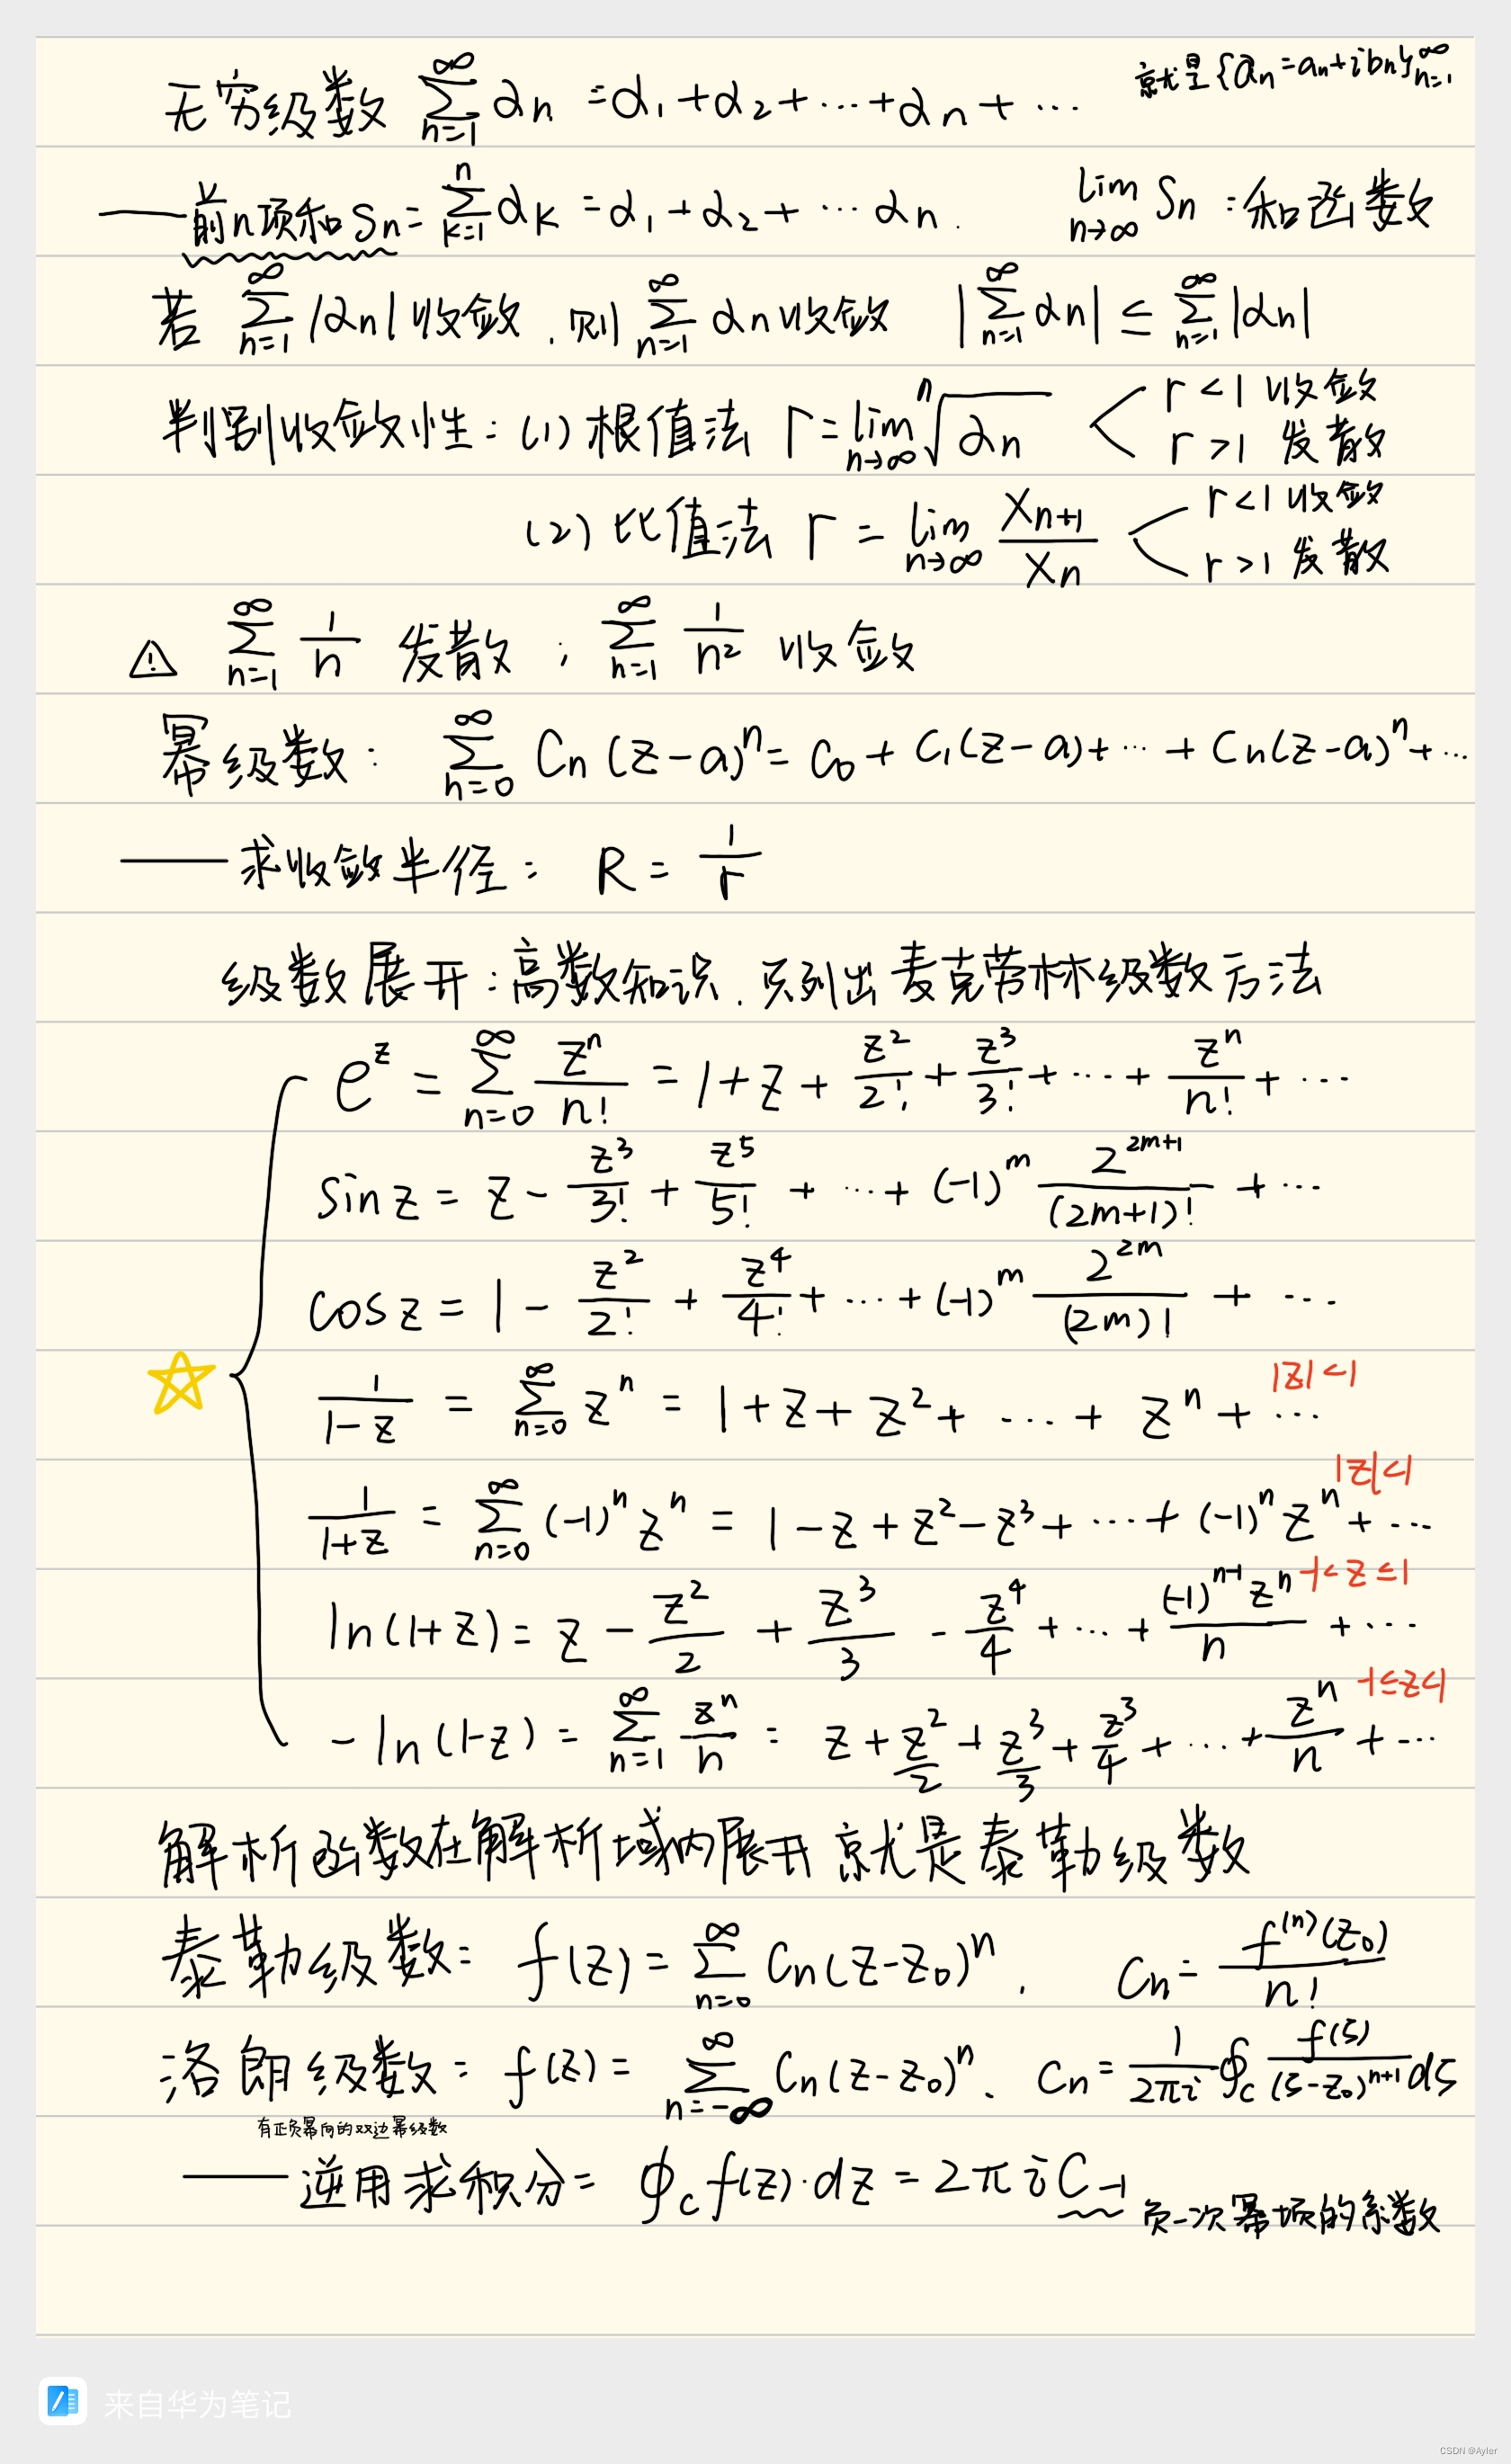 无穷级数 ∑_{n=1}^{∞} α_n = α_1 + α_2 + … + α_n + … 就是{α_n = a_n + i b_n}_{n=1}^{∞}
—— 前n项和 S_n = ∑_{k=1}^{n} α_k = α_1 + α_2 + … α_n . lim_{n→∞} S_n = 和函数
若 ∑_{n=1}^{∞} |α_n| 收敛, 则 ∑_{n=1}^{∞} α_n 收敛 |∑_{n=1}^{∞} α_n| ≤ ∑_{n=1}^{∞} |α_n|
判别收敛性: (1) 根值法 r = lim_{n→∞} \sqrt[n]{α_n} < r<1 收敛 r>1 发散
(2) 比值法 r = lim_{n→∞} x_{n+1}/x_n < r<1 收敛 r>1 发散
⚠ ∑_{n=1}^{∞} 1/n 发散 ; ∑_{n=1}^{∞} 1/n² 收敛
幂级数: ∑_{n=0}^{∞} C_n (z-a)^n = C_0 + C_1(z-a) + … + C_n(z-a)^n + …
—— 求收敛半径: R = 1/r
级数展开: 高数知识, 只列出麦克劳林级数方法
e^z = ∑_{n=0}^{∞} z^n/n! = 1 + z + z²/2! + z³/3! + … + z^n/n! + …
sin z = z - z³/3! + z⁵/5! + … + (-1)^m 2^{2m+1}/(2m+1)! + …
cos z = 1 - z²/2! + z⁴/4! + … + (-1)^m 2^{2m}/(2m)! + …
1/(1-z) = ∑_{n=0}^{∞} z^n = 1 + z + z² + … + z^n + … |z|<1
1/(1+z) = ∑_{n=0}^{∞} (-1)^n z^n = 1 - z + z² - z³ + … + (-1)^n z^n + … |z|<1
ln(1+z) = z - z²/2 + z³/3 - z⁴/4 + … + (-1)^{n-1} z^n/n + … -1<z≤1
-ln(1-z) = ∑_{n=1}^{∞} z^n/n = z + z²/2 + z³/3 + z³/4 + … + z^n/n + … -1≤z<1
解析函数在解析域内展开就是泰勒级数
泰勒级数: f(z) = ∑_{n=0}^{∞} C_n (z-z_0)^n , C_n = f^{(n)}(z_0)/n!
洛朗级数: f(z) = ∑_{n=-∞}^{∞} C_n (z-z_0)^n , C_n = 1/(2πi) ∮_C f(ζ)/(ζ-z_0)^{n+1} dζ
有正负幂向的双边幂级数
—— 逆用求积分: ∮_C f(z)·dz = 2πi C_{-1} 负一次幂项的系数
来自华为笔记
CSDN @Ayler